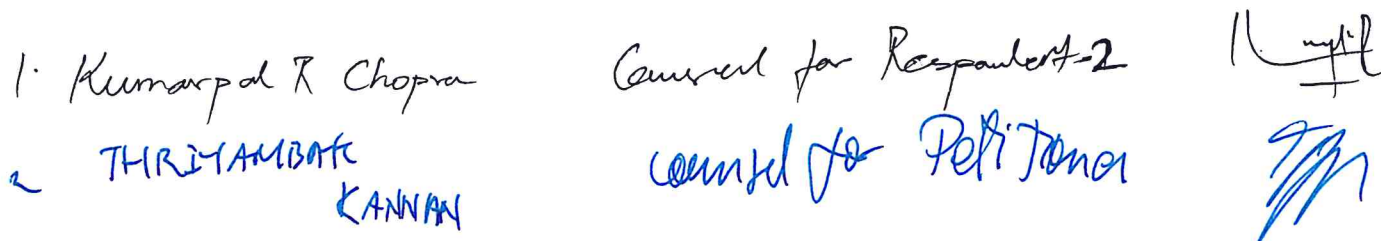 1. Kumarpal R Chopra Counsel for Respondent-2
2 THRIYAMBAK Counsel for Petitioner
KANNAN